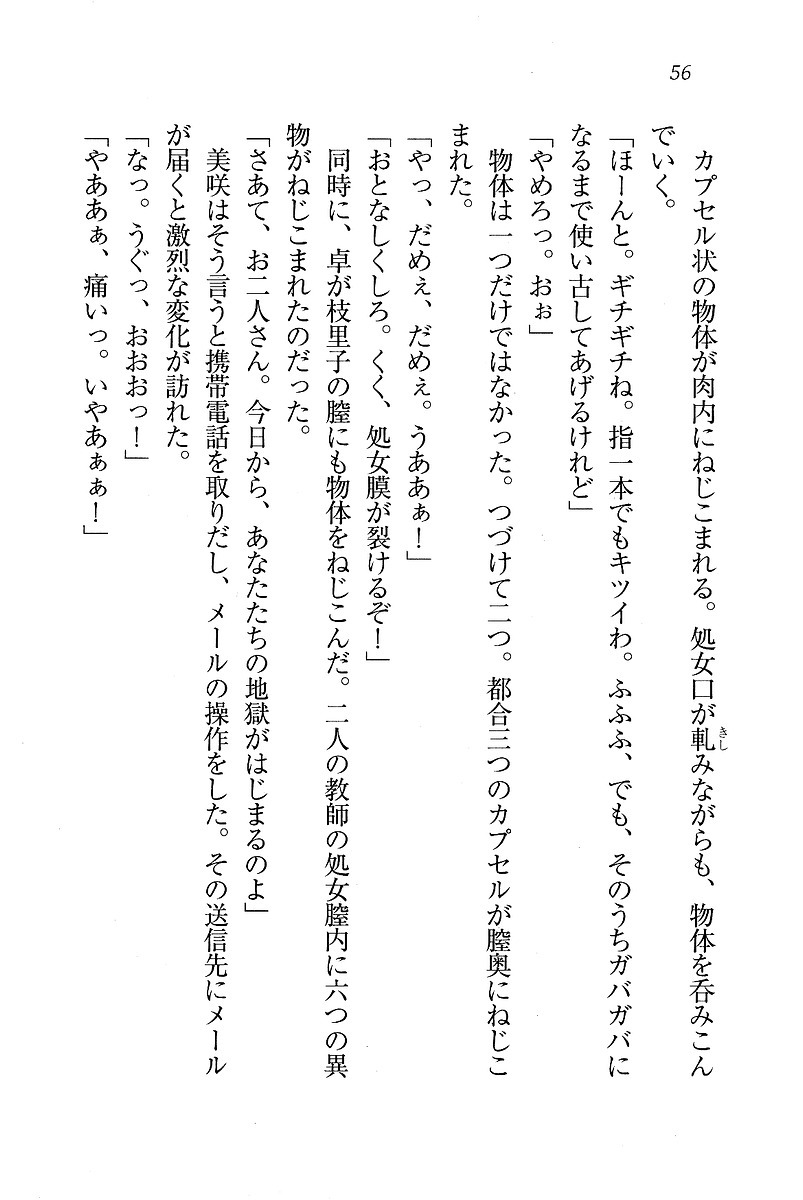 56
カプセル状の物体が肉内にねじこまれる。処女口が軋みながらも、物体を呑みこん
きし
でいく。
「ほーんと。ギチギチね。指一本でもキツイわ。ふふふ、でも、そのうちガバガバに
なるまで使い古してあげるけれど」
「やめろっ。おぉ」
物体は一つだけではなかった。つづけて二つ。都合三つのカプセルが膣奥にねじこ
まれた。
「やっ、だめぇ、だめぇ。うああぁ！」
「おとなしくしろ。くく、処女膜が裂けるぞ！」
同時に、卓が枝里子の膣にも物体をねじこんだ。二人の教師の処女膣内に六つの異
物がねじこまれたのだった。
「さあて、お二人さん。今日から、あなたたちの地獄がはじまるのよ」
美咲はそう言うと携帯電話を取りだし、メールの操作をした。その送信先にメール
が届くと激烈な変化が訪れた。
「なっ。うぐっ、おおおっ！」
「やああぁ、痛いっ。いやあぁぁ！」